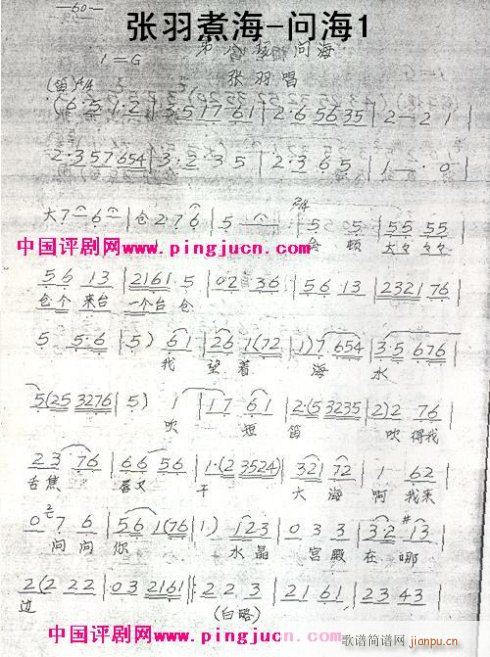 -60-
张羽煮海-问海1
问海
1=G
张羽唱
(笛)4/4
(6·5 1·2 | 3·5 17 61 | 2·6 5635 | 2— 2 1 |
2·3 57654 | 3·2 3 5 | 2·3 6 5 | 1— ·0 |
大7— 6— | 仓2 7 6 | 5 — | 2/4 5 5 | 55 55 |
中国评剧网www.pingjucn.com
56 13 | 2161 5 | 02 36 | 56 13 | 2321 76 |
仓个 来台 一个台 仓
5 5·6 | 5) 61 | 26 1(72 | 1)7 654 | 35 676 |
我 望着 海 水
5(25 3276 | 5) 1 | 17 61 | 2·(5 3235 | 2)2 76 |
吹 短 笛 吹得我
23 76 | 66 56 | 1·(2 3524) | 321 72 | 1 62 |
舌焦 唇又 干 大海 啊 我来
0 7 6 | 56 1(76 | 1) 123 | 0 3 3 | 32 #13 |
问问 你 水晶 宫殿 在哪
2(2 22 | 03 2161 |: 22 3 | 21 61 | 23 43 |
边 (白略)
中国评剧网www.pingjucn.com
歌谱简谱网
jianpu.cn